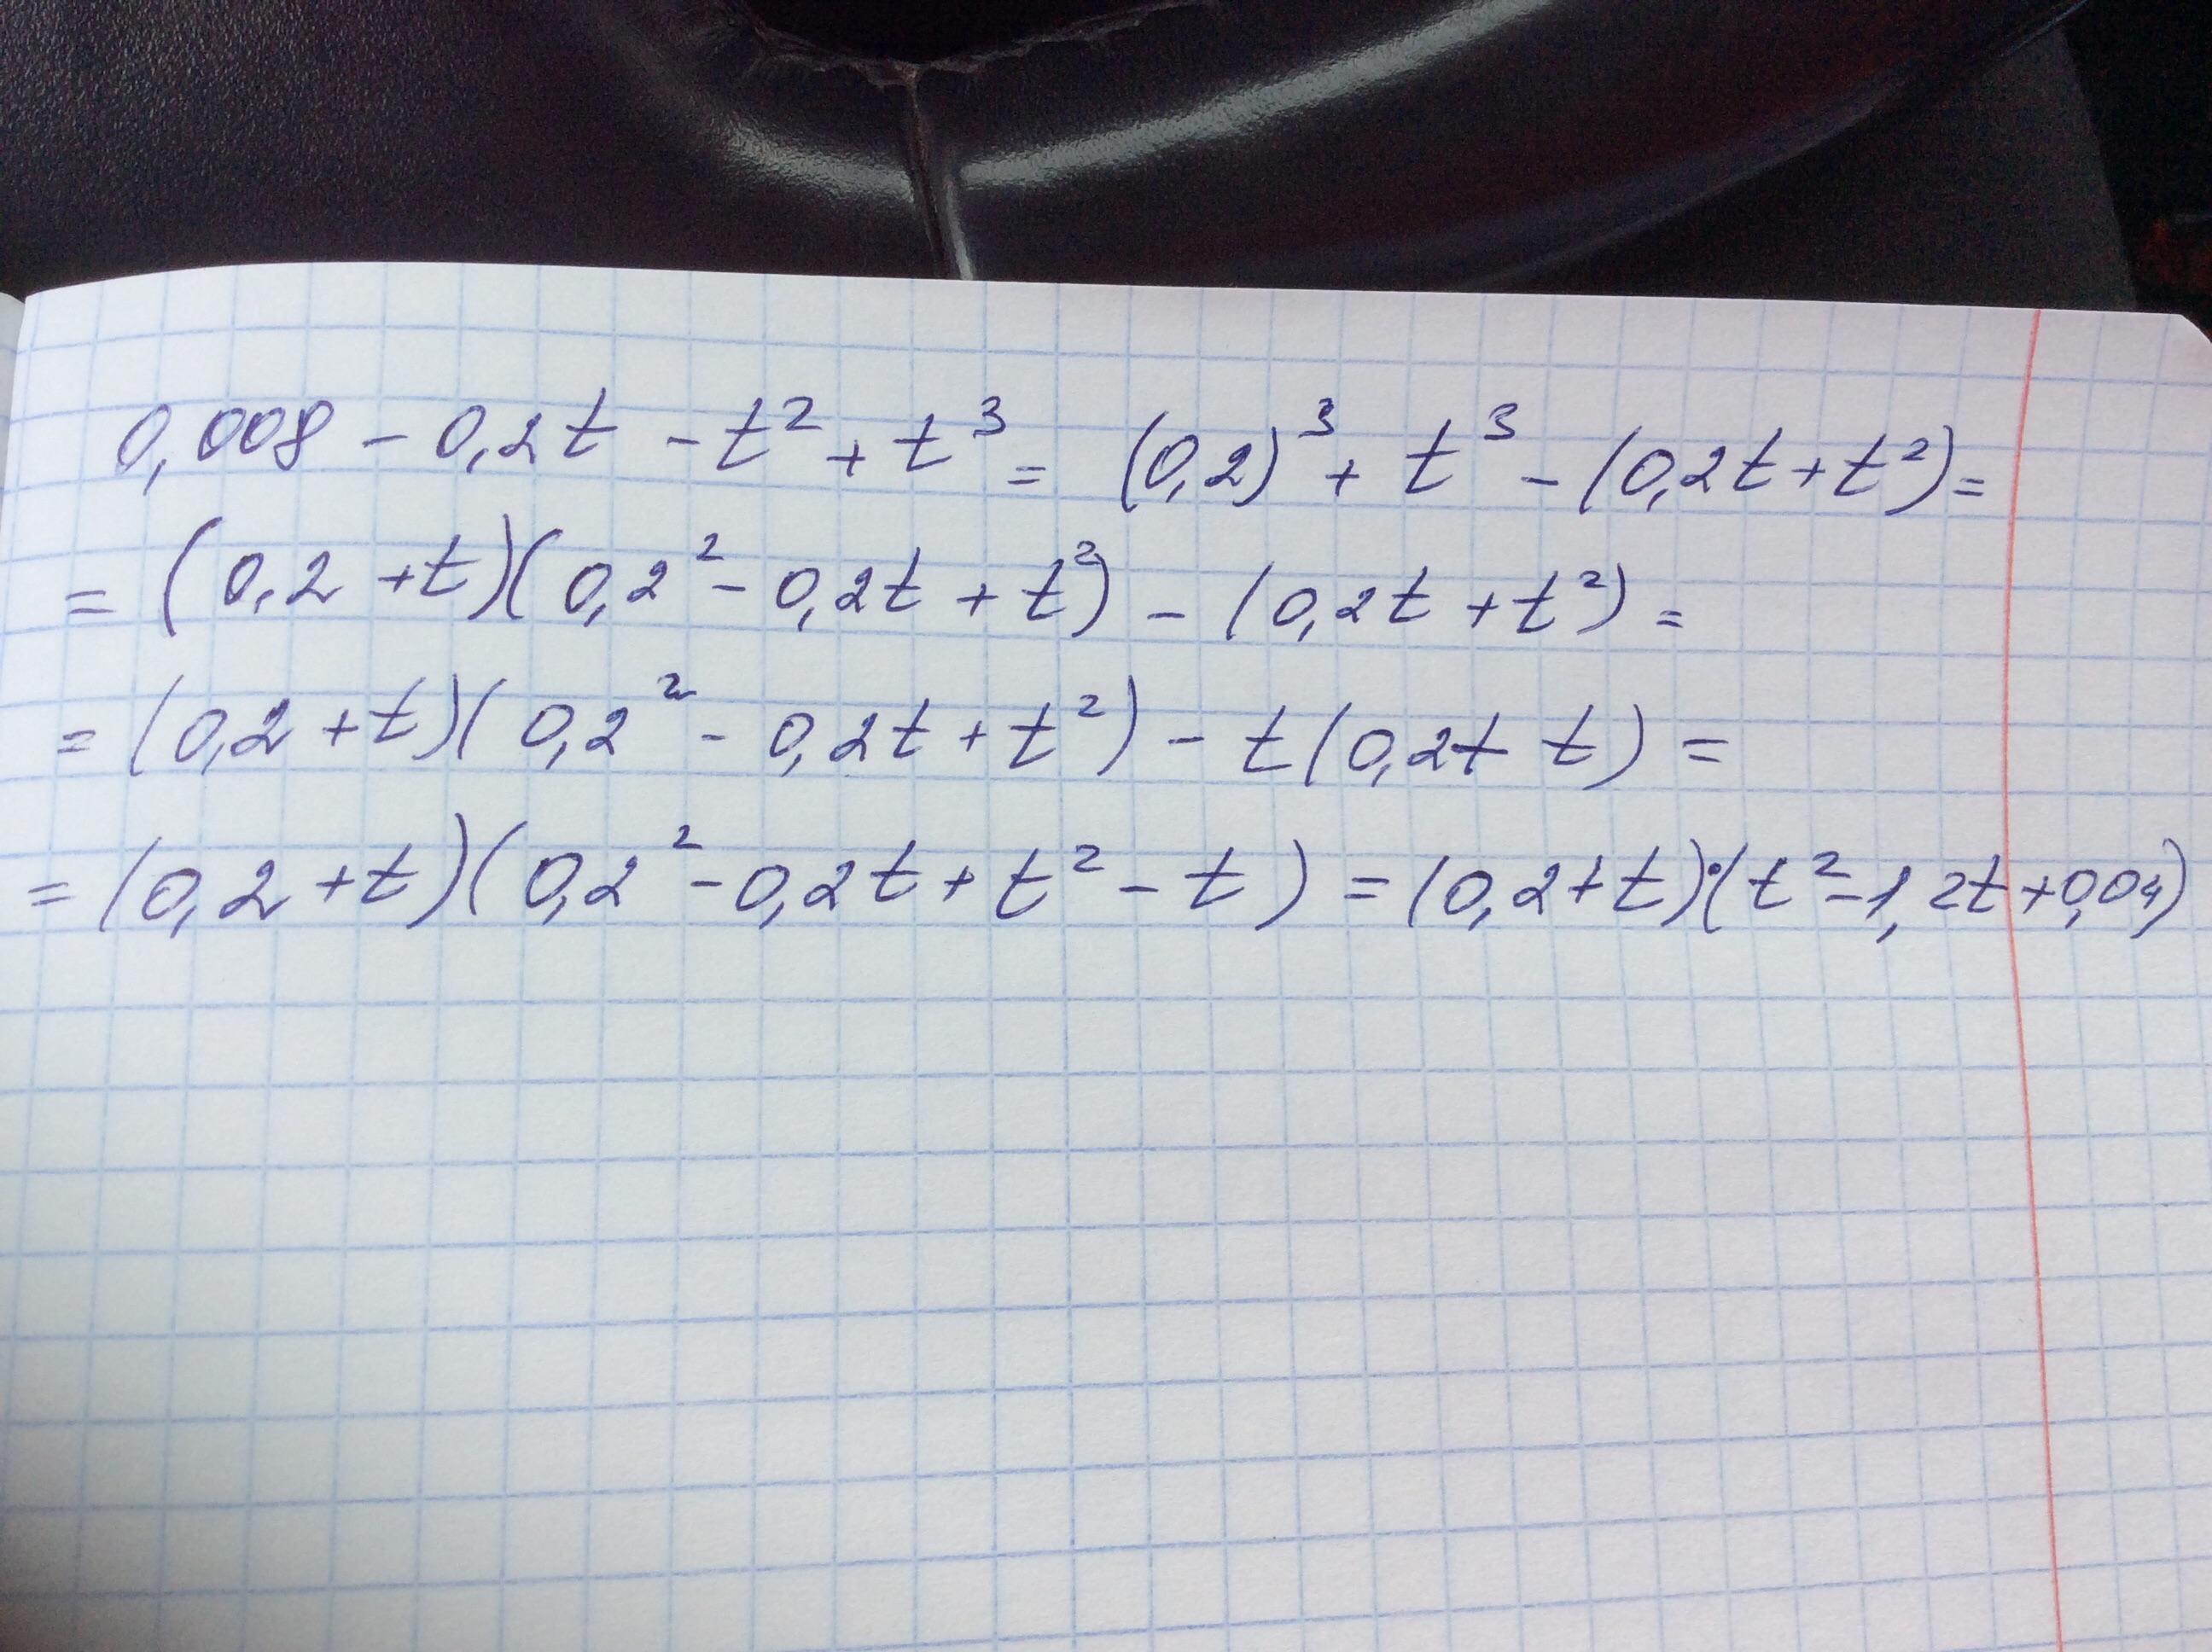 0,008 - 0,2t - t² + t³ = (0,2)³ + t³ - (0,2t + t²) =
= (0,2 + t)(0,2² - 0,2t + t²) - (0,2t + t²) =
= (0,2 + t)(0,2² - 0,2t + t²) - t(0,2 + t) =
= (0,2 + t)(0,2² - 0,2t + t² - t) = (0,2 + t)·(t² - 1,2t + 0,04)